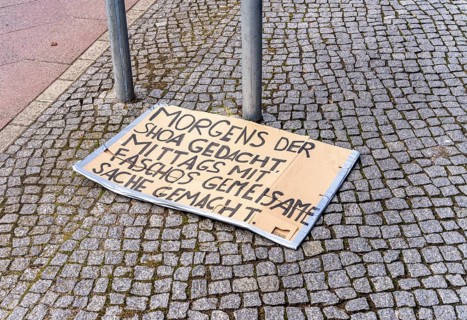 MORGENS DER
SHOA GEDACHT.
MITTAGS MIT
FASCHOS GEMEINSAME
SACHE GEMACHT.